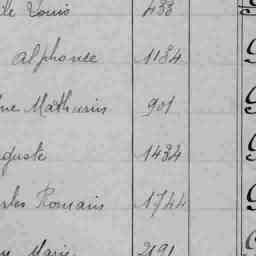 Louis 433
Alphonse 1184
Mathurin 901
guste 1434
Romain 1744
Marie 2191